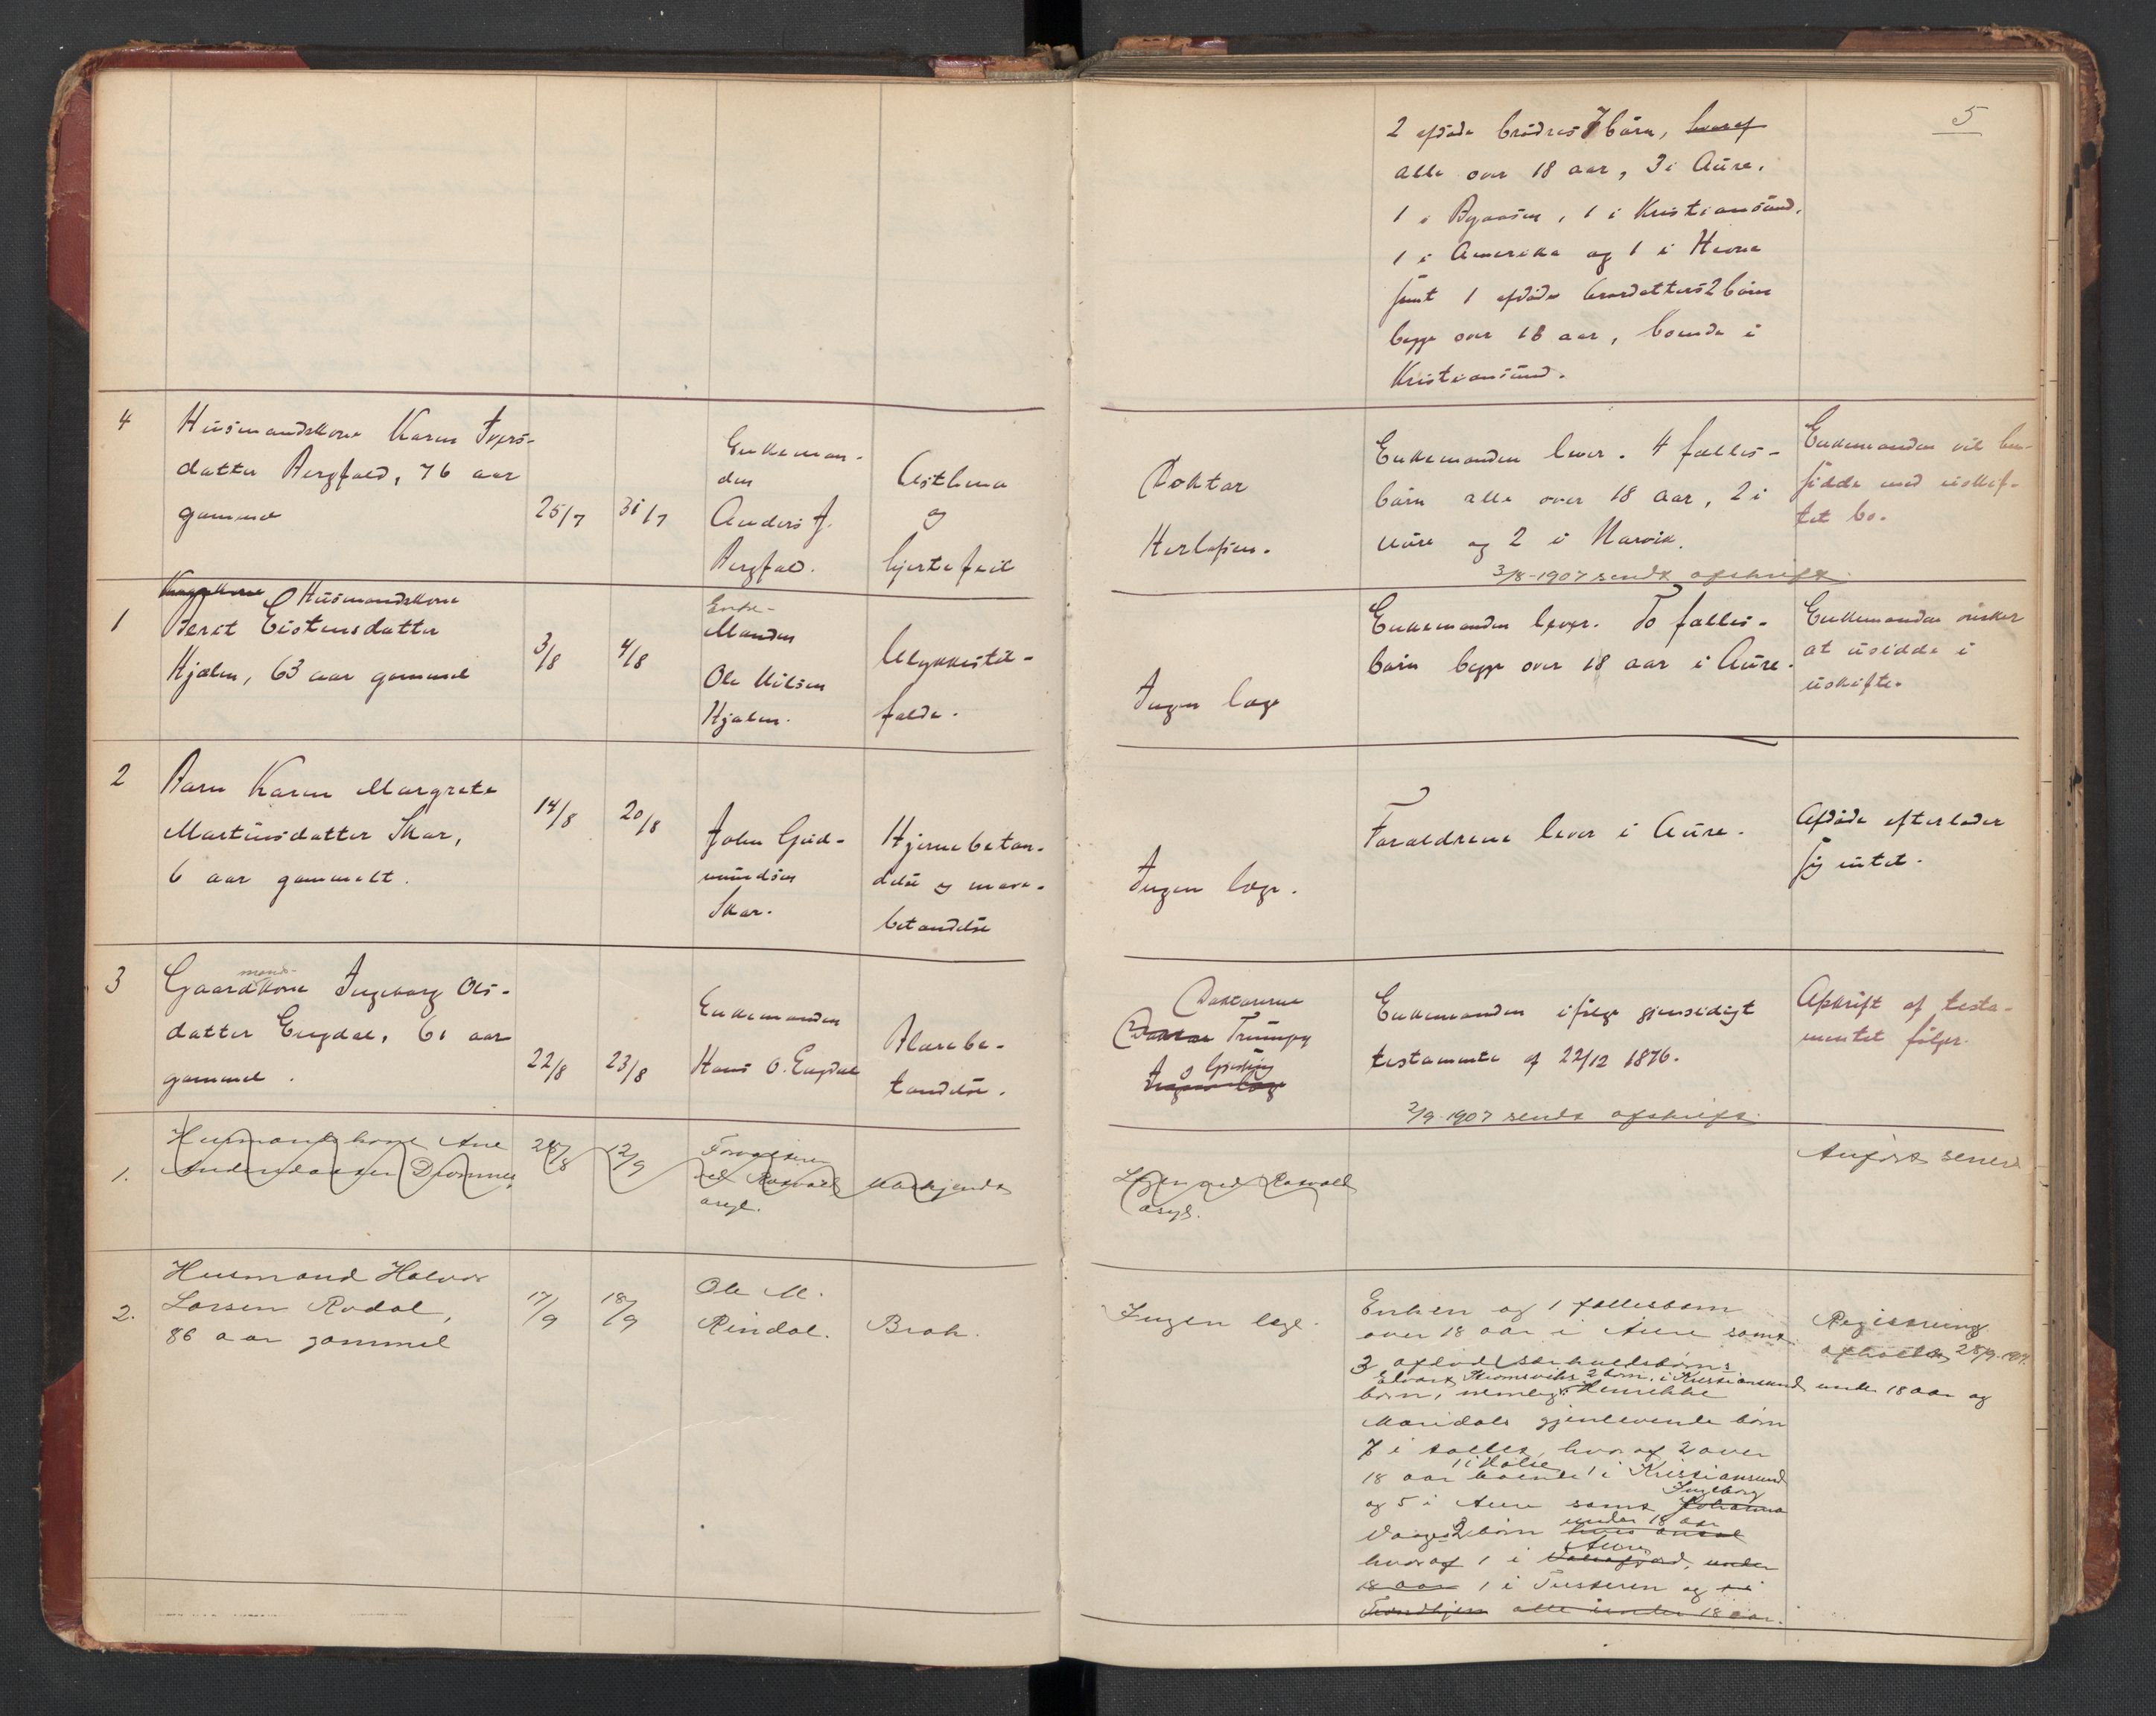 5
2 afdøde brødres 7 børn, hvoraf
alle over 18 aar, 3 i Aure.
1 i Bynæsset, 1 i Kristiansund.
1 i Amerika og 1 i Hevne
samt 1 afdøde brordatters 2 børn
begge over 18 aar, boende i
Kristiansund.
4
Husmandskone Karen Ivers-
datter Bergfald, 76 aar
gammel
25/7
31/7
Enkeman-
den
Anders J.
Bergfald.
Asthma
og
hjertefeil
Doktor
Herlofsen.
Enkemanden lever. 4 fælles-
børn alle over 18 aar, 2 i
Aure og 2 i Narvik.
3/8-1907 sendt afskrift.
Enkemanden vil hen-
sidde med uskif-
tet bo.
1
Husmandskone
Beret Eistensdatter
Hjælm, 63 aar gammel
3/8
4/8
Enke-
Manden
Ole Nilsen
Hjælm.
Ulykkestil-
fælde.
Ingen læge
Enkemanden lever. To fælles-
børn begge over 18 aar i Aure.
Enkemanden ønsker
at usidde i
uskifte.
2
Barn Karen Margrete
Martinsdatter Skar,
6 aar gammelt.
14/8
20/8
John Gud-
mundsen
Skar.
Hjernebetæn-
delse og mave-
betændelse
Ingen læge.
Forældrene lever i Aure.
Afdøde efterlader
sig intet.
3
Gaardmandskone Ingeborg Ols-
datter Engdal, 61 aar
gammel.
22/8
23/8
Enkemanden
Hans O. Engdal
Blærebe-
tændelse.
Doktorerne
Doktor Trumpy
og Gjæsling
Ingen læge
Enkemanden ifølge gjensidigt
testamente af 22/12 1876.
2/9-1907 sendt afskrift.
Afskrift af testa-
mentet følger.
1.
Husmandskone Ane
Andersdatter Dromnes
28/8
12/9
Forvalteren
ved Rotvold
asyl.
Ubekjendt
Lægen ved Rotvold
asyl.
Anført senere
2.
Husmand Halvor
Larsen Rodal,
86 aar gammel
17/9
18/9
Ole M.
Rindal.
Brok.
Ingen læge.
Enken og 1 fællesbarn
over 18 aar i Aure samt
3 afdøde særkuldsbørns
Edvart 2 børn i Kristiansund under 18 aar og
børn, nemlig: Henrikke
Maridals gjenlevende børn
7 i tallet, hvoraf 2 over
18 aar boende 1 i Halse 1 i Kristiansund
og 5 i Aure samt Johanna Ingeborg
Vaages 2 børn under 18 aar hvis antal
hvoraf 1 i Aure Valsøfjord, under
18 aar 1 i Tusteren og 1 i
Trondhjem alle under 18 aar.
Registrering
afholdes 28/9-1907.